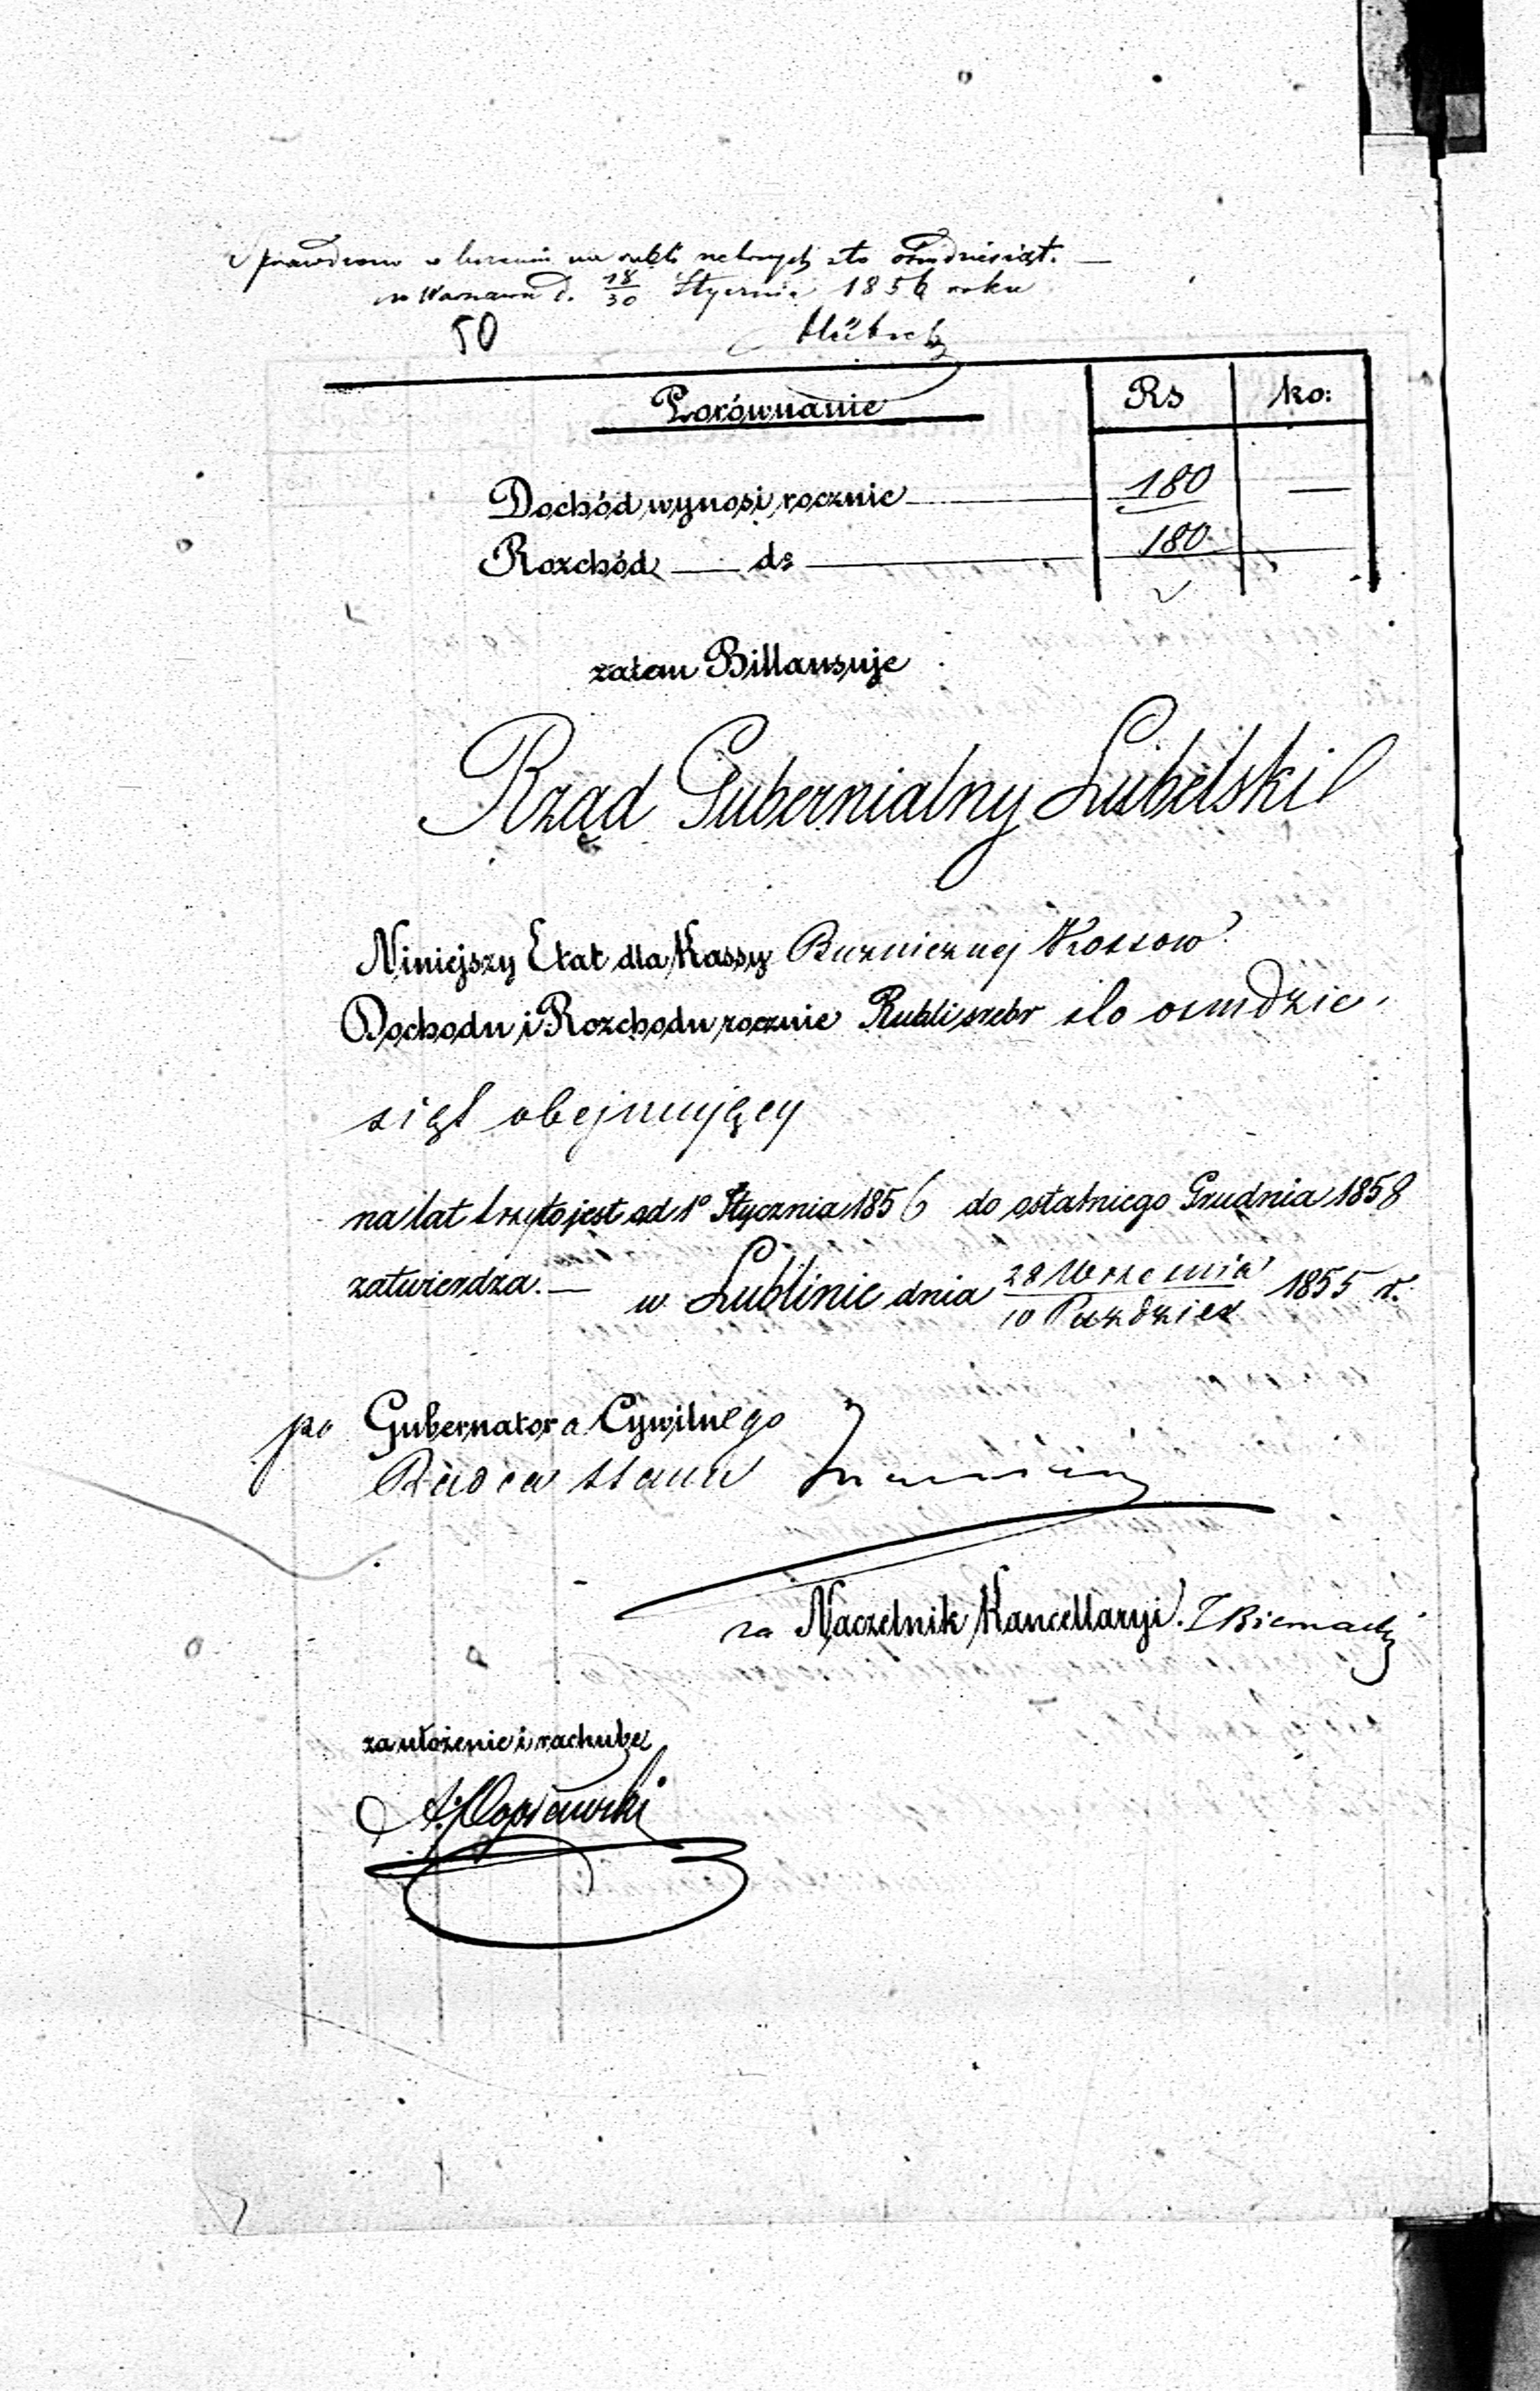 Sprawdzono w liczeniu na rubli srebrnych sto ośmdziesiąt. —
w Warszawie d. 18/30 Stycznia 1856 roku
50
Porównanie Rs ko:
Dochód wynosi rocznie 180 —
Rozchód — do — 180
zatem Billansuje
Rząd Gubernialny Lubelski
Niniejszy Etat dla Kassy Buzniczney Kossow
Dochodu i Rozchodu rocznie Rubli srebr sto osmdzie
siąt obejmujący
na lat trzy to jest od 1° Stycznia 1856 do ostatniego Grudnia 1858
zatwierdza. — w Lublinie dnia 28 Wrzesnia / 10 Pazdzier 1855 r.
po Gubernatora Cywilnego
Radca Stanu
za Naczelnik Kancellaryi.
za ułożenie i rachubę